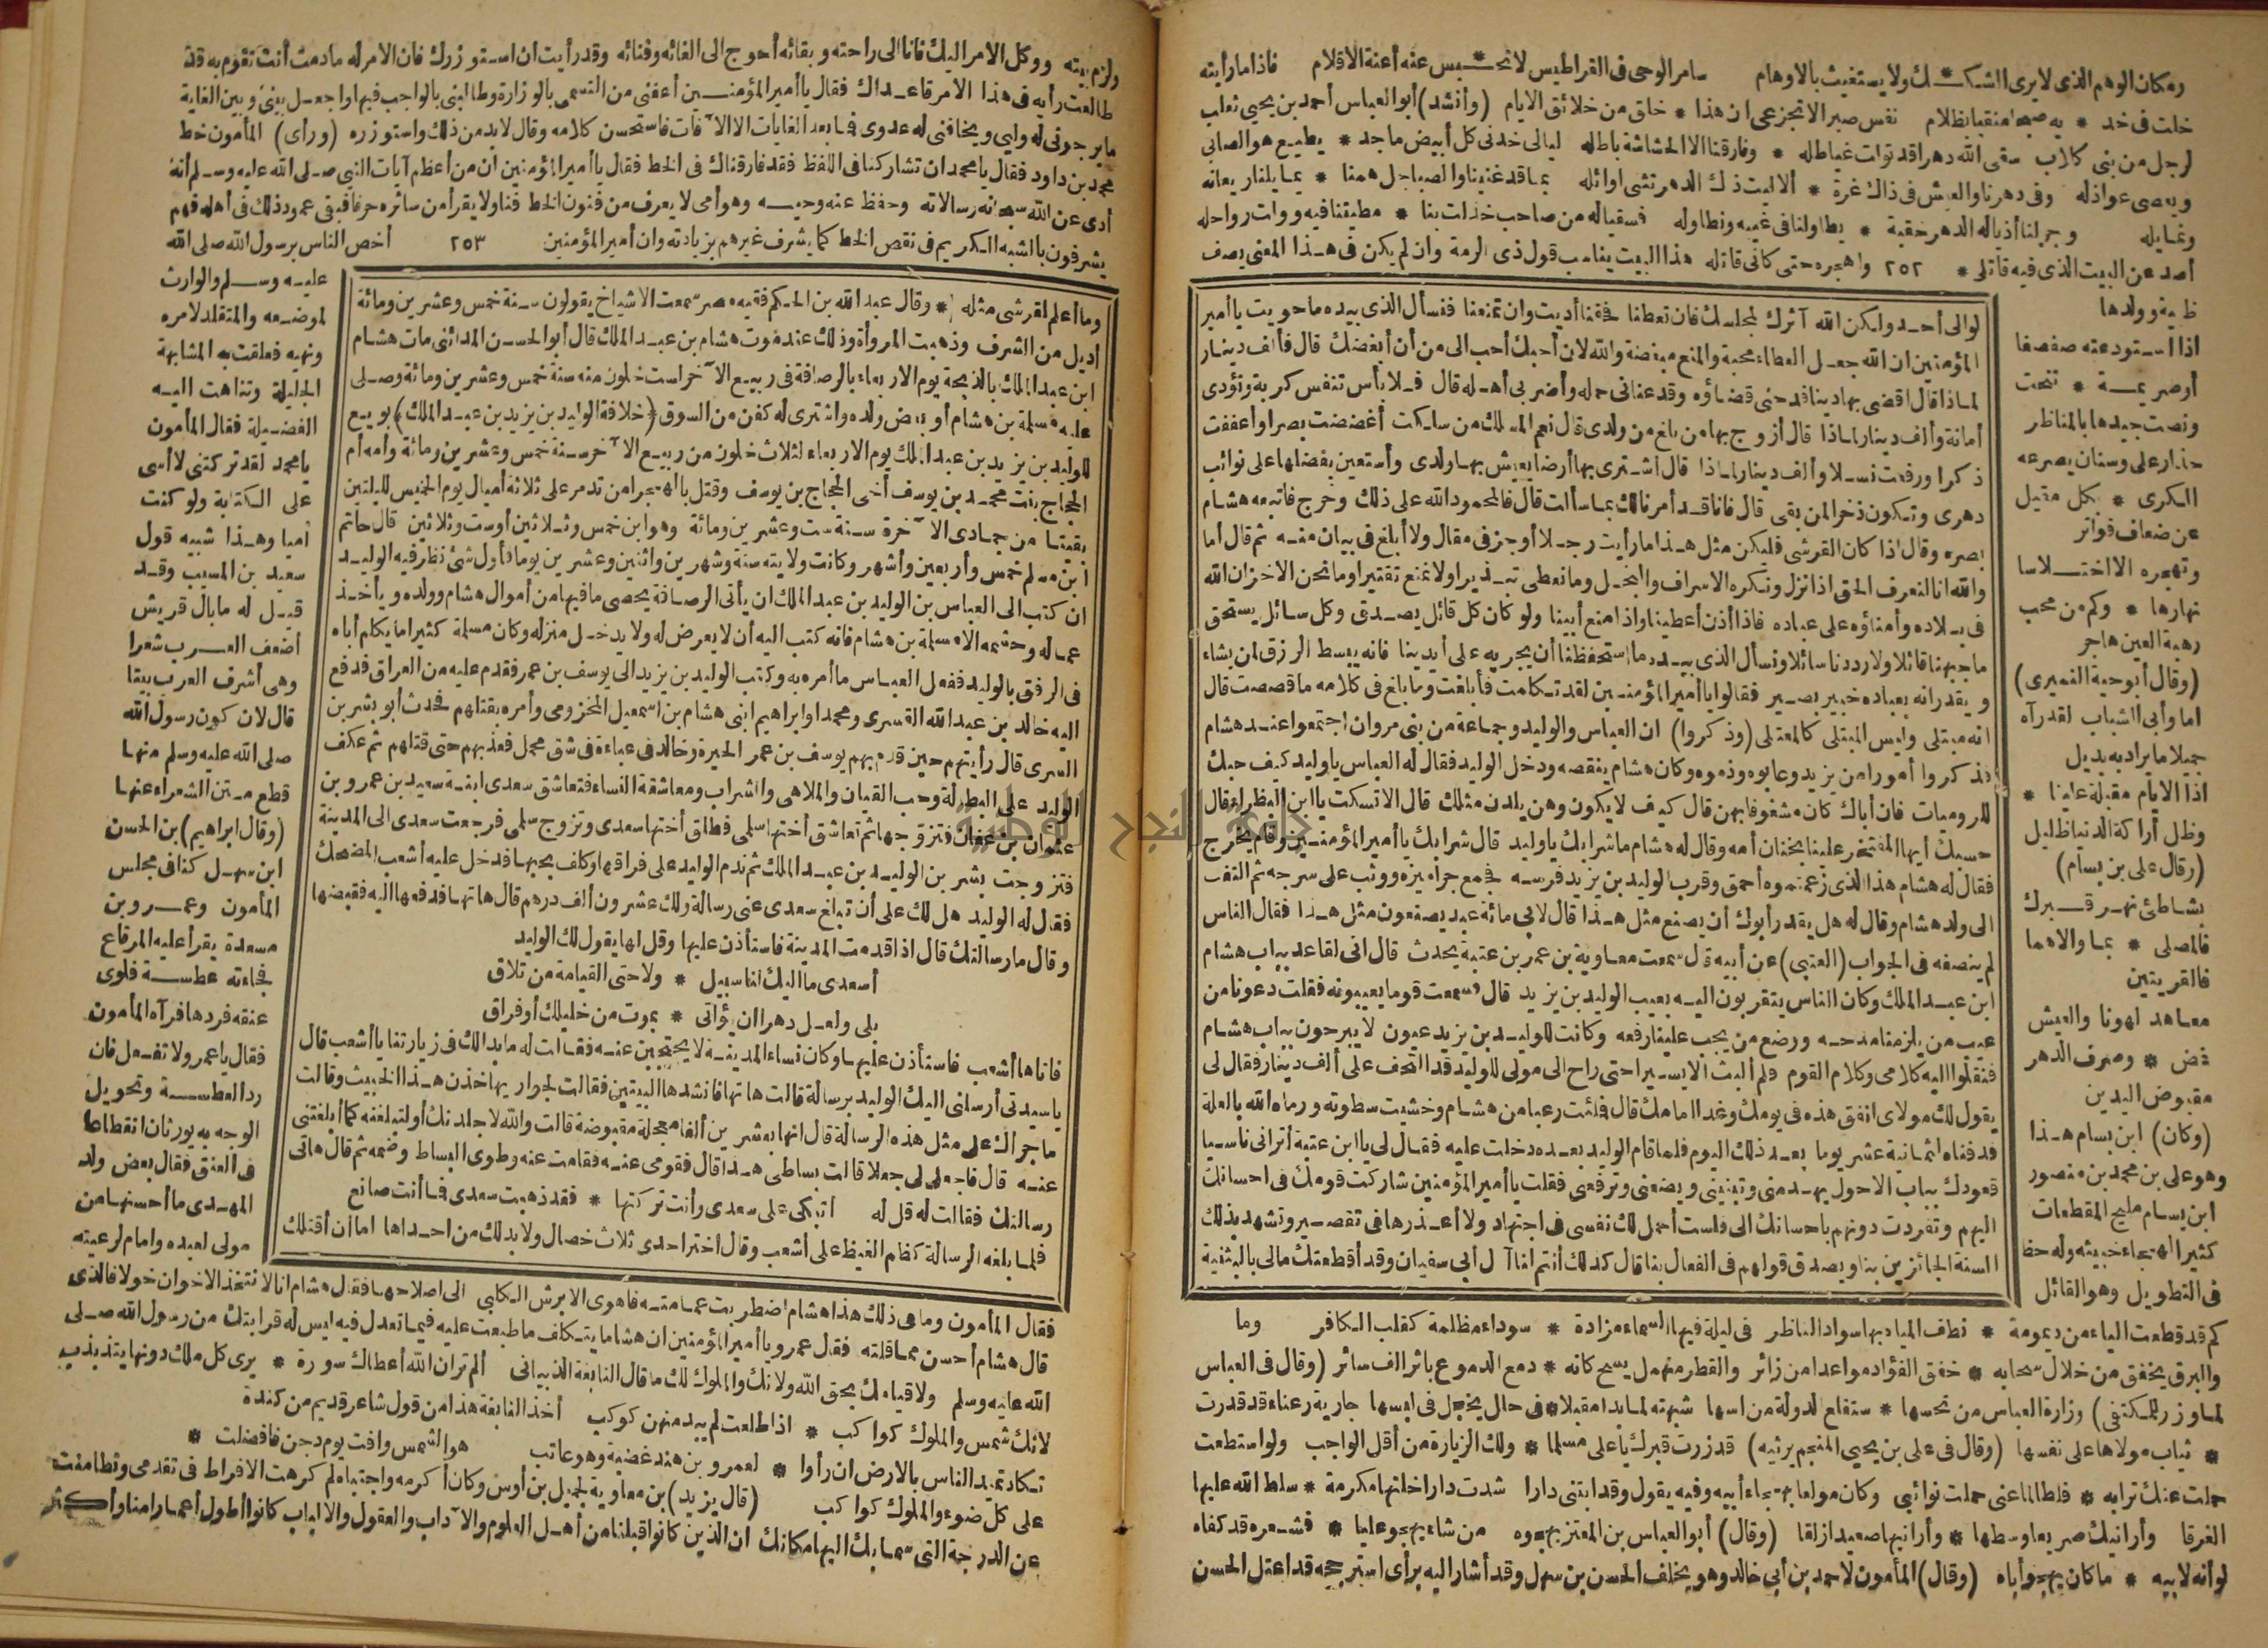 رمكان الوهم الذى لا يرى الشكك ولا يستغيث بالاوهام سامر الوحى فى القراطيس لا تحبس عنه أعنة الاقلام فاذا ما رأيته
لرجل من بنى كلاب سقى الله دهرا قد توات غياطله * وفارقنا الا الحشاشة باطله ليالى خدنى كل أبيض ماجد * يطيع هو الصابى
ويعصى عواذله وفى دهرنا والعيش فى ذاك غرة * ألا ليت ذاك الدهر تثنى أوائله بما قد غنينا والصبا جل همنا * يمايلنا ريعانه
ونمايله وجر لنا أذياله الدهر حقبة * يطاولنا فى غيه ونطاوله فسقياله من صاحب خذلت بنا * مطيتنا فيه وولت رواحله
أصد عن البيت الذى فيه قاتلى * ٢٥٢ واهجره حتى كانى قاتله هذا البيت يناسب قول ذى الرمة وان لم يكن فى هذا المعنى يصف
ظبية وولدها
اذا استودعته صفصفا
أو صريمة * تنحت
ونصت جيدها بالمناظر
حذارا على وسنان يصرعه
الكرى * بكل مقيل
عن ضعاف فواتر
وتهجره الا اختلاسا
نهارها * وكم من محب
رهبة العين هاجر
(وقال أبوحية النميرى)
اما وأبى الشباب لقد رآه
جميلا ما يراد به بديل
اذا الايام مقبلة علينا *
وظل أراكة الدنيا ظليل
(وقال على بن بسام)
بشاطئ نهر قبرك
فالمصلى * بما والاهما
فالقريتين
معاهد لهونا والعيش
غض * وصرف الدهر
مقبوض اليدين
(وكان) ابن بسام هذا
وهو على بن محمد بن منصور
ابن بسام مليح المقطعات
كثير الهجاء خبيثه وله حظ
فى التطويل وهو القائل
لوالى أحد ولكن الله آثرك لمجلسك فان تعطنا فحقنا أديت وان تمنعنا فنسأل الذى بيده ما حويت يا أمير
المؤمنين ان الله جعل العطاء محبة والمنع مبغضة والله لان أحبك أحب الى من أن أبغضك قال فألف دينار
لماذا قال أقضى بها دينا قد حنى قضاؤه وقد عنانى حمله وأضر بى أهله قال فلا بأس تنفس كربة وتؤدى
أمانة وألف دينار لماذا قال أزوج بها من بلغ من ولدى قال نعم المسلك من سلكت أغضضت بصرا وأعففت
ذكرا ورفعت نسلا وألف دينار لماذا قال اشترى بها أرضا يعيش بها ولدى وأستعين بفضلها على نوائب
دهرى وتكون ذخرا لمن بقى قال فانا قد أمرنا لك بما سألت قال فالمحمود الله على ذلك وخرج فاتبعه هشام
بصره وقال اذا كان القرشى فليكن مثل هذا ما رأيت رجلا أوجز فى مقال ولا أبلغ فى بيان منه ثم قال أما
والله انا لنعرف الحق اذا نزل ونكره الاسراف والبخل وما نعطى تبذيرا ولا نمنع تقتيرا وما نحن الا خزان الله
فى بلاده وأمناؤه على عباده فاذا أذن أعطينا واذا منع أبينا ولو كان كل قائل يصدق وكل سائل يستحق
ما جبهنا قائلا ولا رددنا سائلا ونسأل الذى بيده ما استحفظنا أن يجريه على أيدينا فانه يبسط الرزق لمن يشاء
ويقدر انه بعباده خبير بصير فقالوا يا أمير المؤمنين لقد تكلمت فأبلغت وما بلغ فى كلامه ما قصصت قال
انه مبتلى وليس المبتلى كالمعتلى (وذكروا) ان العباس والوليد وجماعة من بنى مروان اجتمعوا عند هشام
فذكروا أمورا من يزيد وعابوه وذموه وكان هشام ينقصه ودخل الوليد فقال له العباس يا وليد كيف حبك
للروميات فان أباك كان مشغوفا بهن قال كيف لا يكون وهن يلدن مثلك قال الا تسكت يا ابن البظراء قال
حسبك أيها المفتخر علينا بختان أمه وقال له هشام ما شرابك يا وليد قال شرابك يا أمير المؤمنين وقام يخرج
فقال له هشام هذا الذى زعمتموه أحمق وقرب الوليد بن يزيد فرسه فجمع جراميزه ووثب على سرجه ثم التفت
الى ولد هشام وقال له هل يقدر أبوك أن يصنع مثل هذا قال لابى مائة عبد يصنعون مثل هذا فقال الناس
لم ينصفه فى الجواب (العتبى) عن أبيه قال سمعت معاوية بن عمر بن عتبة يحدث قال انى لقاعد بباب هشام
ابن عبد الملك وكان الناس يتقربون اليه بعيب الوليد بن يزيد قال فسمعت قوما يعيبونه فقلت دعونا من
عيب من يلزمنا مدحه ووضع من يجب علينا رفعه وكانت للوليد بن يزيد عيون لا يبرحون بباب هشام
فنقلوا اليه كلامى وكلام القوم فلم ألبث الا يسيرا حتى راح الى مولى للوليد قد التحف على ألف دينار فقال لى
يقول لك مولاى انفق هذه فى يومك وغدا امامك قال فملئت رعبا من هشام وخشيت سطوته ورماه الله بالعلة
فدفناه لثمانية عشر يوما بعد ذلك اليوم فلما قام الوليد بعده دخلت عليه فقال لى يا ابن عتبة أترانى ناسيا
قعودك بباب الاحول يهدمنى وتبنينى ويضعنى وترفعنى فقلت يا أمير المؤمنين شاركت قومك فى احسانك
اليهم وتفردت دونهم باحسانك الى فلست أحمل لك نفسى فى اجتهاد ولا أعذرها فى تقصير وتشهد بذلك
السنة الجائزين بنا ويصدق قولهم فى الفعال بنا قال كذلك أنتم لنا آل أبى سفيان وقد أقطعتك مالى بالبثنية
كم قد قطعت اليك من ديمومة * نطف المياه بها سواد الناظر فى ليلة فيها السماء مرادة * سوداء مظلمة كقلب الكافر وما
والبرق يخفق من خلال سحابه * خفق الفؤاد مواعدا من زائر والقطر منهمل يسح كانه * دمع الدموع باثر الف سائر (وقال فى العباس
لما وزر للمكتفى) وزارة العباس من نحسها * ستقلع الدولة من اسها شبهته لما بدا مقبلا * فى حال يخجل فى لبسها جارية رعناء قد قدرت
* ثياب مولاها على نفسها (وقال فى على بن يحيى المنجم يرثيه) قد زرت قبرك يا على مسلما * ولك الزيارة من أقل الواجب ولو استطعت
حملت عنك ترابه * فلطالما عنى حملت نوائبى وكان مولعا بهجاء أبيه وفيه يقول وقد ابتنى دارا شدت دارا خلتها مكرمة * سلط الله عليها
الغرقا وأرانيك صريعا وسطها * وأرانيها صعيدا زلقا (وقال) أبو العباس بن المعتز يهجوه من شاء يهجو عليا * فشعره قد كفاه
لو أنه لابيه * ما كان يهجو أباه (وقال) المأمون لاحمد بن أبى خالد وهو يخلف الحسن بن سهل وقد أشار اليه برأى استرجحه قد اعتل الحسن
ولزم بيته ووكل الامر اليك فانا الى راحته وبقائه أحوج الى القائه وفنائه وقد رأيت ان استوزرك فان الامر له ما دمت أنت تقوم به قد
طالعت رأيه فى هذا الامر فاعداك فقال يا أمير المؤمنين أعفنى من التسمى بالوزارة وطالبنى بالواجب فيها واجعل بينى وبين الغاية
ما يرجونى له وليى ويخافنى له عدوى فما بعد الغايات الا الآفات فاستحسن كلامه وقال لابد من ذلك واستوزره (ورأى) المأمون خط
محمد بن داود فقال يا محمد ان تشاركنا فى اللفظ فقد فارقناك فى الخط فقال يا أمير المؤمنين ان من أعظم آيات النبى صلى الله عليه وسلم أنه
أدى عن الله سبحانه رسالاته وحفظ عنه وحيه وهو أمى لا يعرف من فنون الخط فنا ولا يقرأ من سائره حرفا فبقى عمود ذلك فى أهله فهم
يشرفون بالشبه الكريم فى نقص الخط كما يشرف غيرهم بزيادته وان أمير المؤمنين ٢٥٣ أخص الناس برسول الله صلى الله
عليه وسلم والوارث
لموضعه والمتقلد لامره
ونهيه فعلقت به المشابهة
الجليلة وتناهت اليه
الفضيلة فقال المأمون
يا محمد لقد تركتنى لا أسى
على الكتابة ولو كنت
أميا وهذا شبيه قول
سعيد بن المسيب وقد
قيل له ما بال قريش
أضعف العرب شعرا
وهى أشرف العرب بيتا
قال لان كون رسول الله
صلى الله عليه وسلم منها
قطع متن الشعراء عنها
(وقال ابراهيم) بن الحسن
ابن سهل كنا فى مجلس
المأمون وعمرو بن
مسعدة يقرأ عليه الرقاع
فجاءته عطسة فلوى
عنقه فردها فرآه المأمون
فقال يا عمرو لا تفعل فان
رد العطسة وتحويل
الوجه به يورثان انقطاعا
فى العنق فقال بعض ولد
المهدى ما أحسنها من
مولى لعبده وامام لرعيته
وما أعلم لقرشى مثله * وقال عبد الله بن الحكم فقيه مصر سمعت الاشياخ يقولون سنة خمس وعشرين ومائة
أديل من الشرف وذهبت المروأة وذلك عند موت هشام بن عبد الملك قال أبو الحسن المدائنى مات هشام
ابن عبد الملك بالذبحة يوم الاربعاء بالرصافة فى ربيع الآخر لست خلون منه سنة خمس وعشرين ومائة وصلى
عليه مسلمة بن هشام أو بعض ولده واشترى له كفن من السوق (خلافة الوليد بن يزيد بن عبد الملك) بويع
للوليد بن يزيد بن عبد الملك يوم الاربعاء لثلاث خلون من ربيع الآخر سنة خمس وعشرين ومائة وأمه أم
الحجاج بنت محمد بن يوسف أخى الحجاج بن يوسف وقتل بالبحراء من تدمر على ثلاثة أميال يوم الخميس لليلتين
بقيتا من جمادى الآخرة سنة ست وعشرين ومائة وهو ابن خمس وثلاثين أو ست وثلاثين قال حاتم
ابن مسلم خمس وأربعين وأشهر وكانت ولايته سنة وشهرين واثنين وعشرين يوما فأول شئ نظر فيه الوليد
ان كتب الى العباس بن الوليد بن عبد الملك ان يأتى الرصافة يحصى ما فيها من أموال هشام وولده ويأخذ
عماله وحشمه الا مسلمة بن هشام فانه كتب اليه أن لا يعرض له ولا يدخل منزله وكان مسلمة كثيرا ما يكلم أباه
فى الرفق بالوليد ففعل العباس ما أمره به وكتب الوليد بن يزيد الى يوسف بن عمر فقدم عليه من العراق فدفع
اليه خالد بن عبد الله القسرى ومحمدا وابراهيم ابنى هشام بن اسمعيل المخزومى وأمره بقتلهم فحدث أبو بشر بن
السرى قال رأيتهم حين قدم بهم يوسف بن عمر الحيرة وخالد فى عباءة فى شق محمل فعذبهم حتى قتلهم ثم عكف
الوليد على البطالة وحب القيان والملاهى والشراب ومعاشقة النساء فتعاشق سعدى ابنة سعيد بن عمرو بن
عثمان بن عفان فتزوجها ثم تعاشق أختها سلمى فطلق أختها سعدى وتزوج سلمى فرجعت سعدى الى المدينة
فتزوجت بشر بن الوليد بن عبد الملك ثم ندم الوليد على فراقها وكلف بحبها فدخل عليه أشعب المضحك
فقال له الوليد هل لك على أن تبلغ سعدى عنى رسالة ولك عشرون ألف درهم قال هاتها فدفعها اليه فقبضها
وقال ما رسالتك قال اذا قدمت المدينة فاستأذن عليها وقل لها يقول لك الوليد
أسعدى ما اليك لنا سبيل * ولا حتى القيامة من تلاق
بلى ولعل دهرا ان يؤاتى * بموت من خليلك أو فراق
فاتاها أشعب فاستأذن عليها وكان نساء المدينة لا يحتجبن عنه فقالت له ما بدا لك فى زيارتنا يا أشعب قال
يا سيدتى أرسلنى اليك الوليد برسالة قالت هاتها فانشدها البيتين فقالت لجواريها خذن هذا الخبيث وقالت
ما جرأك على مثل هذه الرسالة قال انها بعشرين ألفا معجلة مقبوضة قالت والله لاجلدنك أو لتبلغنه كما أبلغتنى
عنه قال فاجعلى لى جعلا قالت بساطى هذا قال فقومى عنه فقامت عنه وطوى البساط وضمه ثم قال هاتى
رسالتك فقالت له قل له أتبكى على سعدى وأنت تركتها * فقد ذهبت سعدى فما أنت صانع
فلما بلغه الرسالة كظم الغيظ على أشعب وقال اختر احدى ثلاث خصال ولابد لك من احداها اما أن أقتلك
فقال المأمون وما فى ذلك هذا هشام اضطربت عمامته فاهوى الابرش الكلبى الى اصلاحها فقال هشام انا لا نتخذ الاخوان خولا فالذى
قال هشام أحسن مما قلته فقال عمرو يا أمير المؤمنين ان هشاما يتكلف ما طبعت عليه فيما تعدل فيه ليس له قرابتك من رسول الله صلى
الله عليه وسلم ولا قيامك بحق الله ولانك والملوك لك ما قال النابغة الذبيانى ألم تر ان الله أعطاك سورة * يرى كل ملك دونها يتذبذب
لانك شمس والملوك كواكب * اذا طلعت لم يبد منهن كوكب أخذ النابغة هذا من قول شاعر قديم من كندة
تكاد تميد الناس بالارض ان رأوا * لعمرو بن هند غضبة وهو عاتب هو الشمس وافت يوم دجن فافضلت *
على كل ضوء والملوك كواكب (قال يزيد) بن معاوية لجميل بن أوس وكان أكرمه واجتباه لم كرهت الافراط فى تقدمى وتطامنت
عن الدرجة التى سما بك اليها مكانك ان الذين كانوا قبلنا من أهل العلوم والآداب والعقول والالباب كانوا أطول أعمارا منا وأكثر
جامعة النجاح الوطنية